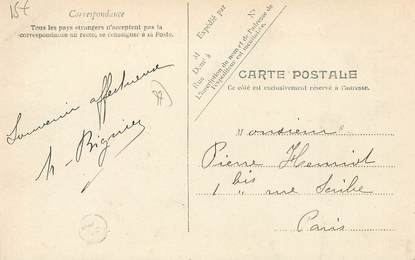 15€
Correspondance
Tous les pays étrangers n'acceptent pas la
correspondance au recto, se renseigner à la Poste.
Souvenir affectueux
Expédié par
M
Demt à
Rue
N°
L'inscription du nom et de l'adresse de
l'expéditeur est facultative.
CARTE POSTALE
Ce côté est exclusivement réservé à l'adresse.
Monsieur
Pierre Henriot
1 bis rue Scribe
Paris